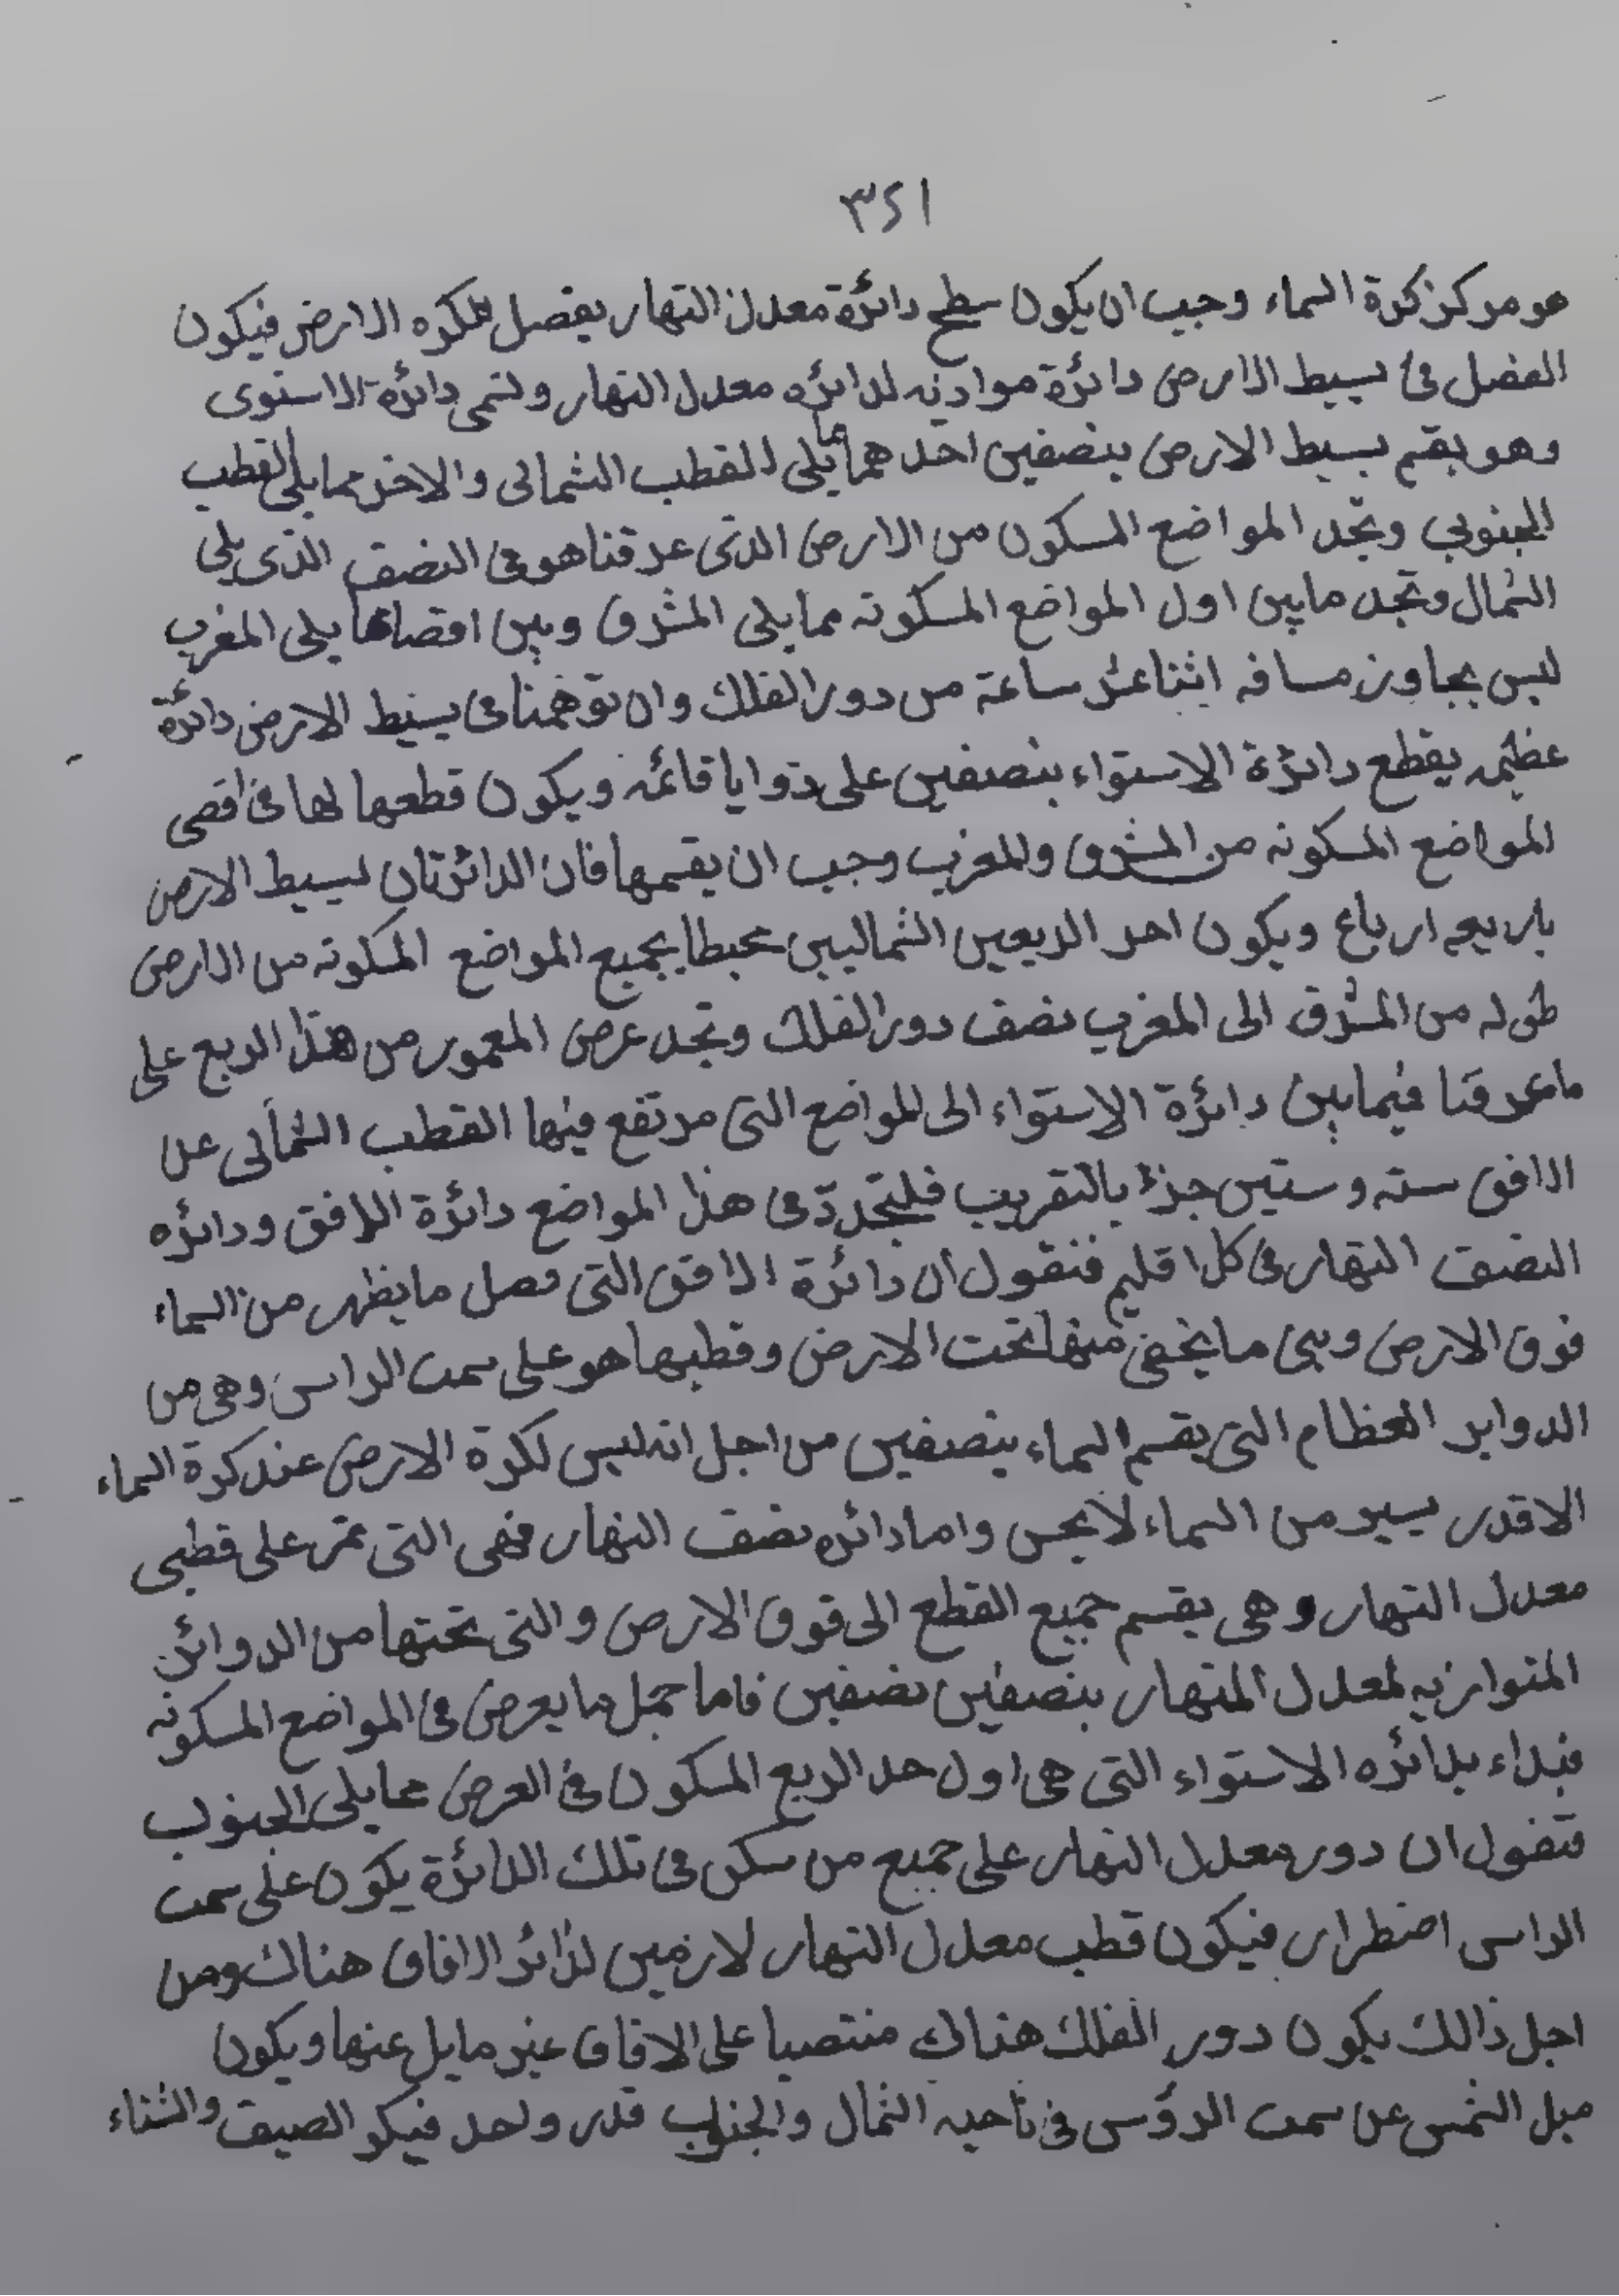 ٣٢١
هو مركز كرة السماء وجب ان يكون سطح دائرة معدل النهار يفصل للكره الارض فيكون
الفصل فى بسيط الارض دائرة موازيه لدائره معدل النهار ولتمى دائرة الاستوى
وهو يقسم بسيط الارض بنصفين احدهما مما يلى القطب الشمالى والاخر مما يلى القطب
الجنوبي ونجد المواضع المسكون من الارض الذى عرفنا هو فى النصف الذى يلى
الشمال ونجد ما بين اول المواضع المسكونه مما يلى المشرق وبين اقصاها يلى المغرب
ليس يجاوز مسافه اثنا عشر ساعة من دور الفلك وان توهمنا فى بسيط الارض دائرة
عظيمه يقطع دائرة الاستواء بنصفين على زوايا قائمه ويكون قطعها لها فى اقصى
المواضع المسكونه من المشرق والمغرب وجب ان يقسمها فان الدائرتان لبسيط الارض
باربعه ارباع ويكون احد الربعين الشماليين محيطا بجميع المواضع المسكونه من الارض
طوله من المشرق الى المغرب نصف دور الفلك ونجد عرض المعمور من هذا الربع على
ما عرفنا فيما بين دائرة الاستواء الى المواضع التى مرتفع فيها القطب الشمالى عن
الافق سته وستين جزء بالتقريب فلنحدد فى هذا المواضع دائرة الافق ودائره
النصف النهار فى كل اقليم فنقول ان دائرة الافق التى فصل ما يظهر من السماء
فوق الارض وبين ما يخفى منها تحت الارض وقطبها هو على سمت الراس وهى من
الدواير العظام التى يقسم السماء بنصفين من اجل انه ليس لكرة الارض عند كرة السماء
الا قدر يسير من السماء لا يحس واما دائره نصف النهار فهى التى تمر على قطبى
معدل النهار وهى يقسم جميع القطع الى فوق الارض والتى تحتها من الدوائر
المتوازيه لمعدل النهار بنصفين نصفين فاما جمل ما يعرض فى المواضع المسكونه
فبداء بدائره الاستواء التى هى اول حد الربع المسكون فى العرض مما يلى الجنوب
فنقول ان دور معدل النهار على جميع من سكن فى تلك الدائرة يكون على سمت
الراس اضطرار فيكون قطب معدل النهار لازمين لدائر الافاق هناك ومن
اجل ذالك يكون دور الفلك هناك منتصبا على الافاق غير مايل عنها ويكون
ميل الشمس عن سمت الرؤس فى ناحيه الشمال والجنوب قدر واحد فيكو الصيف والشتاء